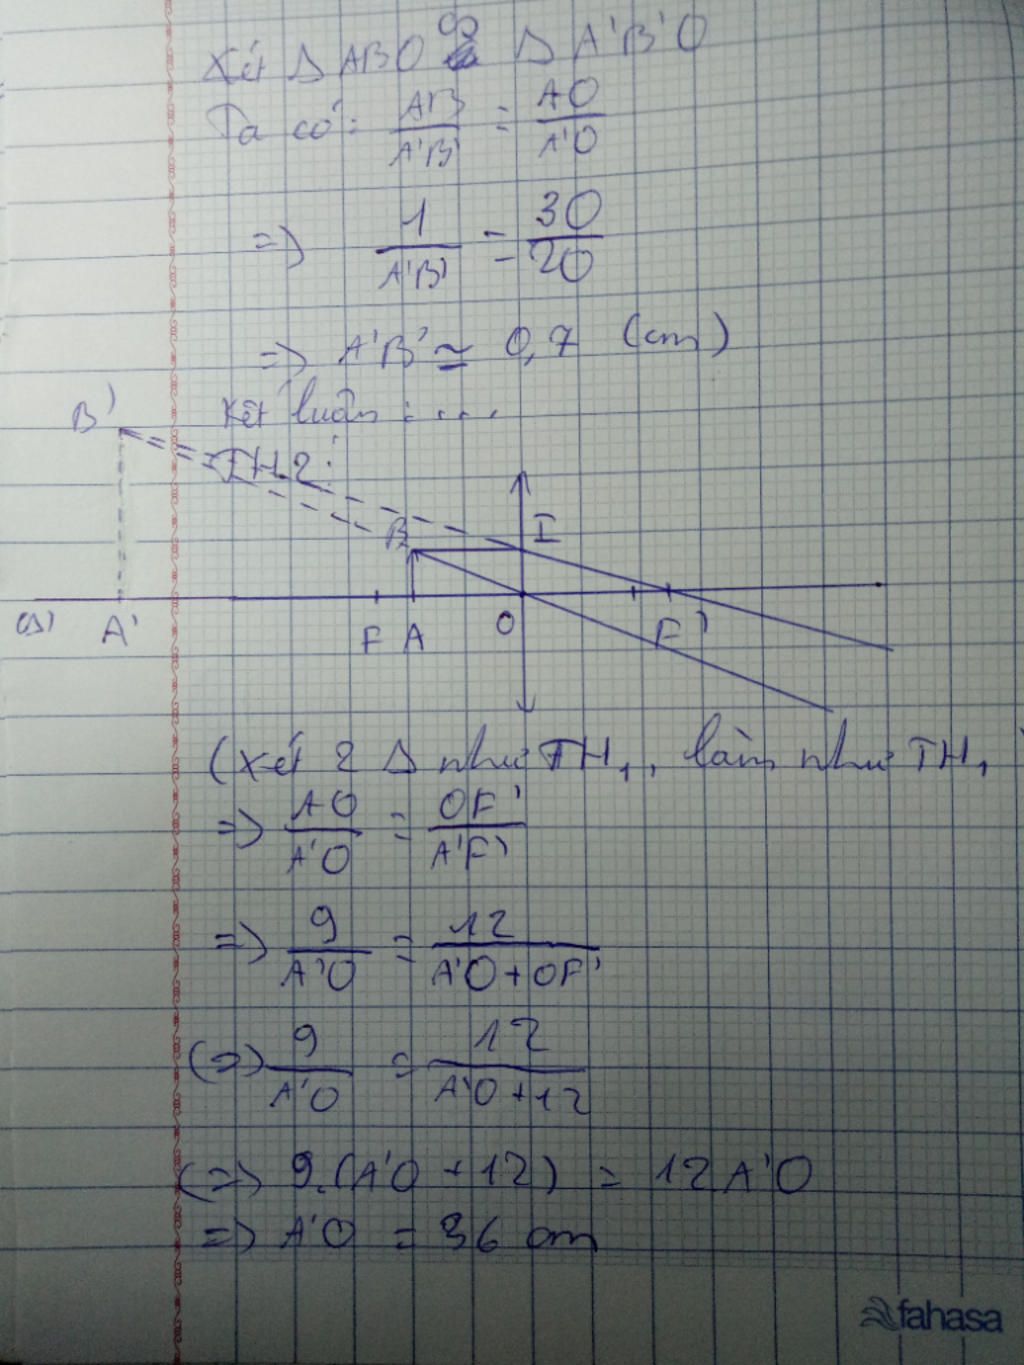 Xét Δ ABO ∽ Δ A'B'O
Ta có: AB/A'B' = AO/A'O
=> 1/A'B' = 30/20
=> A'B' ≃ 0,7 (cm)
Kết luận : ....
B'
TH2:
B I
(Δ) A' F A O F'
(Xét 2 Δ như TH1, làm như TH1
=> AO/A'O = OF'/A'F'
=> 9/A'O = 12/A'O + OF'
(=>) 9/A'O = 12/A'O + 12
(=>) 9.(A'O + 12) = 12A'O
=> A'O = 36 cm
fahasa